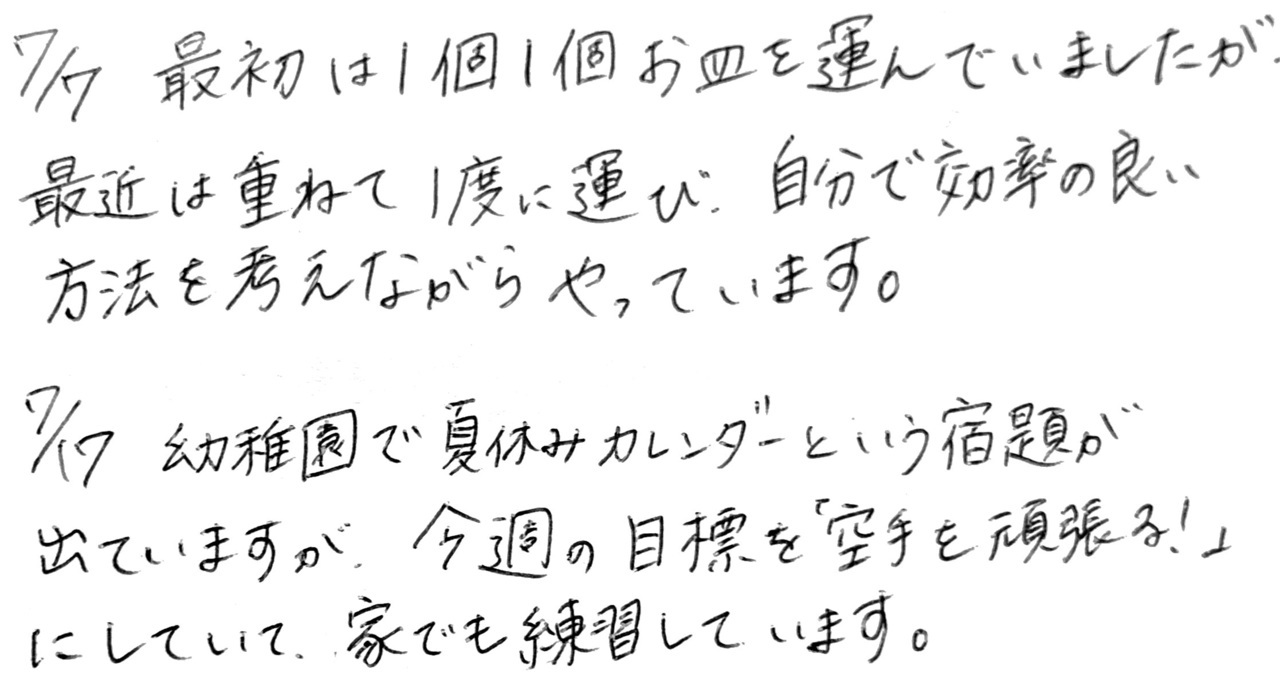 7/7 最初は1個1個お皿を運んでいましたが、
最近は重ねて1度に運び、自分で効率の良い
方法を考えながらやっています。
7/17 幼稚園で夏休みカレンダーという宿題が
出ていますが、今週の目標を「空手を頑張る!」
にしていて、家でも練習しています。